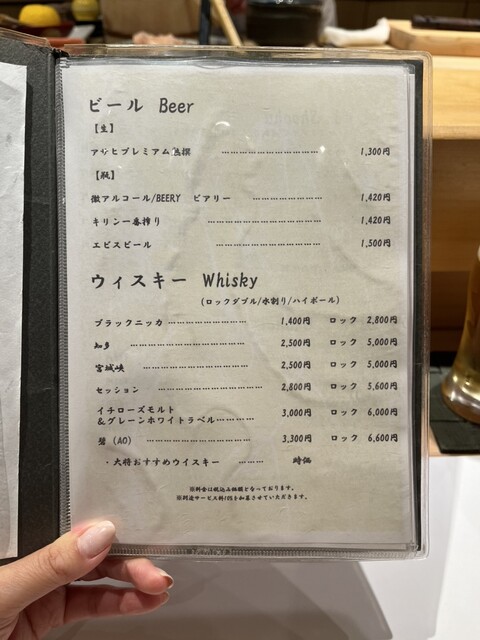 ビール Beer
【生】
アサヒプレミアム熟撰 ………………… 1,300円
【瓶】
微アルコール/BEERY ビアリー ………………… 1,420円
キリン一番搾り ………………… 1,420円
エビスビール ………………… 1,500円
ウィスキー Whisky
(ロックダブル/水割り/ハイボール)
ブラックニッカ ………………… 1,400円 ロック 2,800円
知多 ………………… 2,500円 ロック 5,000円
宮城峡 ………………… 2,500円 ロック 5,000円
セッション ………………… 2,800円 ロック 5,600円
イチローズモルト
&グレーンホワイトラベル………… 3,000円 ロック 6,000円
碧 (AO) ………………… 3,300円 ロック 6,600円
・大将おすすめウイスキー ……… 時価
※料金は税込み価額となっております。
※別途サービス料10%を加算させていただきます。